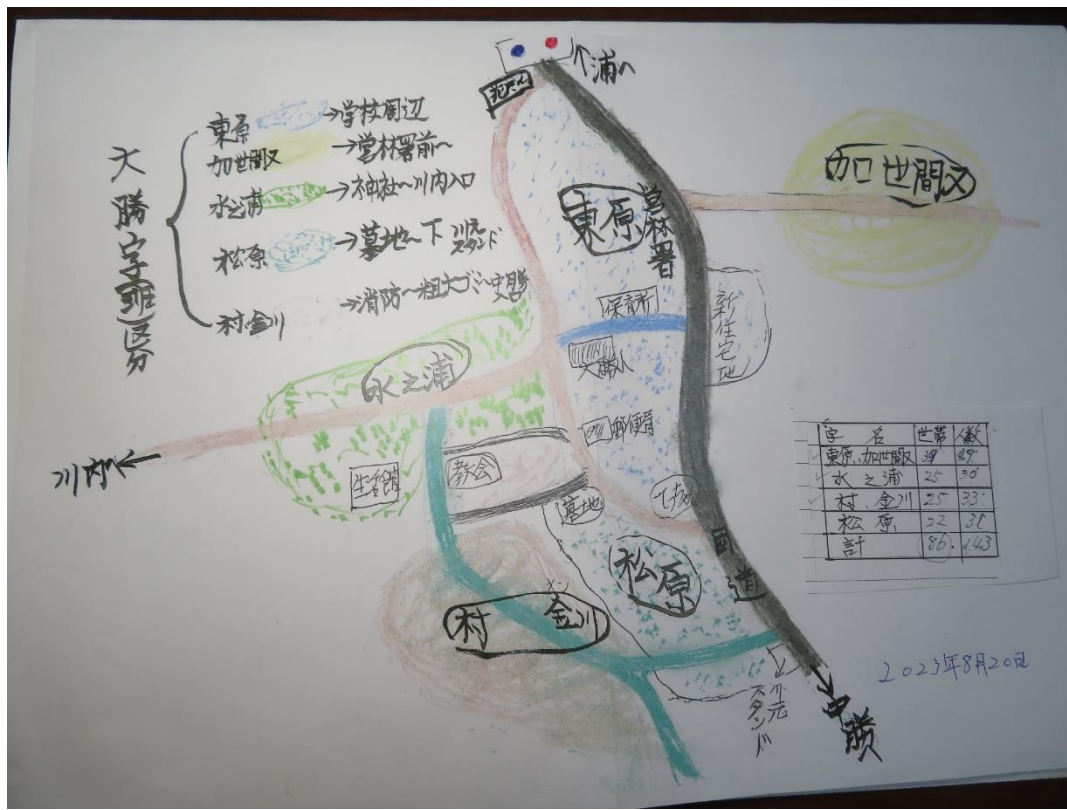 ↑浦へ
大勝字班区分
東原→学校周辺
加世間又→営林署前〜
水之浦→神社〜川内入口
松原→墓地〜下川元スタンド
村・金川→消防〜粗大ゴミ〜中勝入口
加世間又
東原
営林署
保育所
新住宅地
大勝小
郵便局
水之浦
川内へ
生活館
教会
墓地
松原
国道
村 金川
川元スタンド
中勝へ
字名 世帯 人数
東原、加世間又
水之浦 25
村、金川 25 33
松原 22 31
計 86 143
2023年8月20日